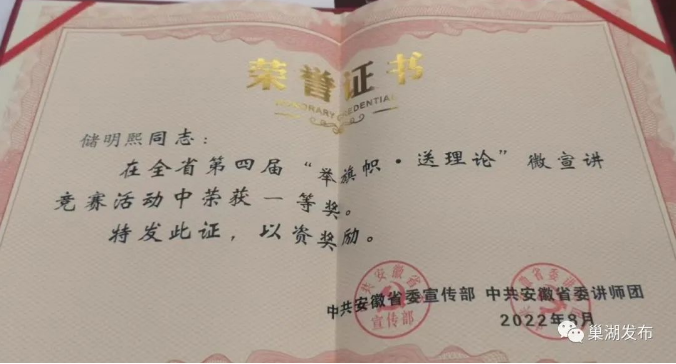 荣誉证书
HONORARY CREDENTIAL
储明熙同志:
在全省第四届“举旗帜·送理论”微宣讲
竞赛活动中荣获一等奖。
特发此证,以资奖励。
中共安徽省委宣传部 中共安徽省委讲师团
2022年8月
巢湖发布